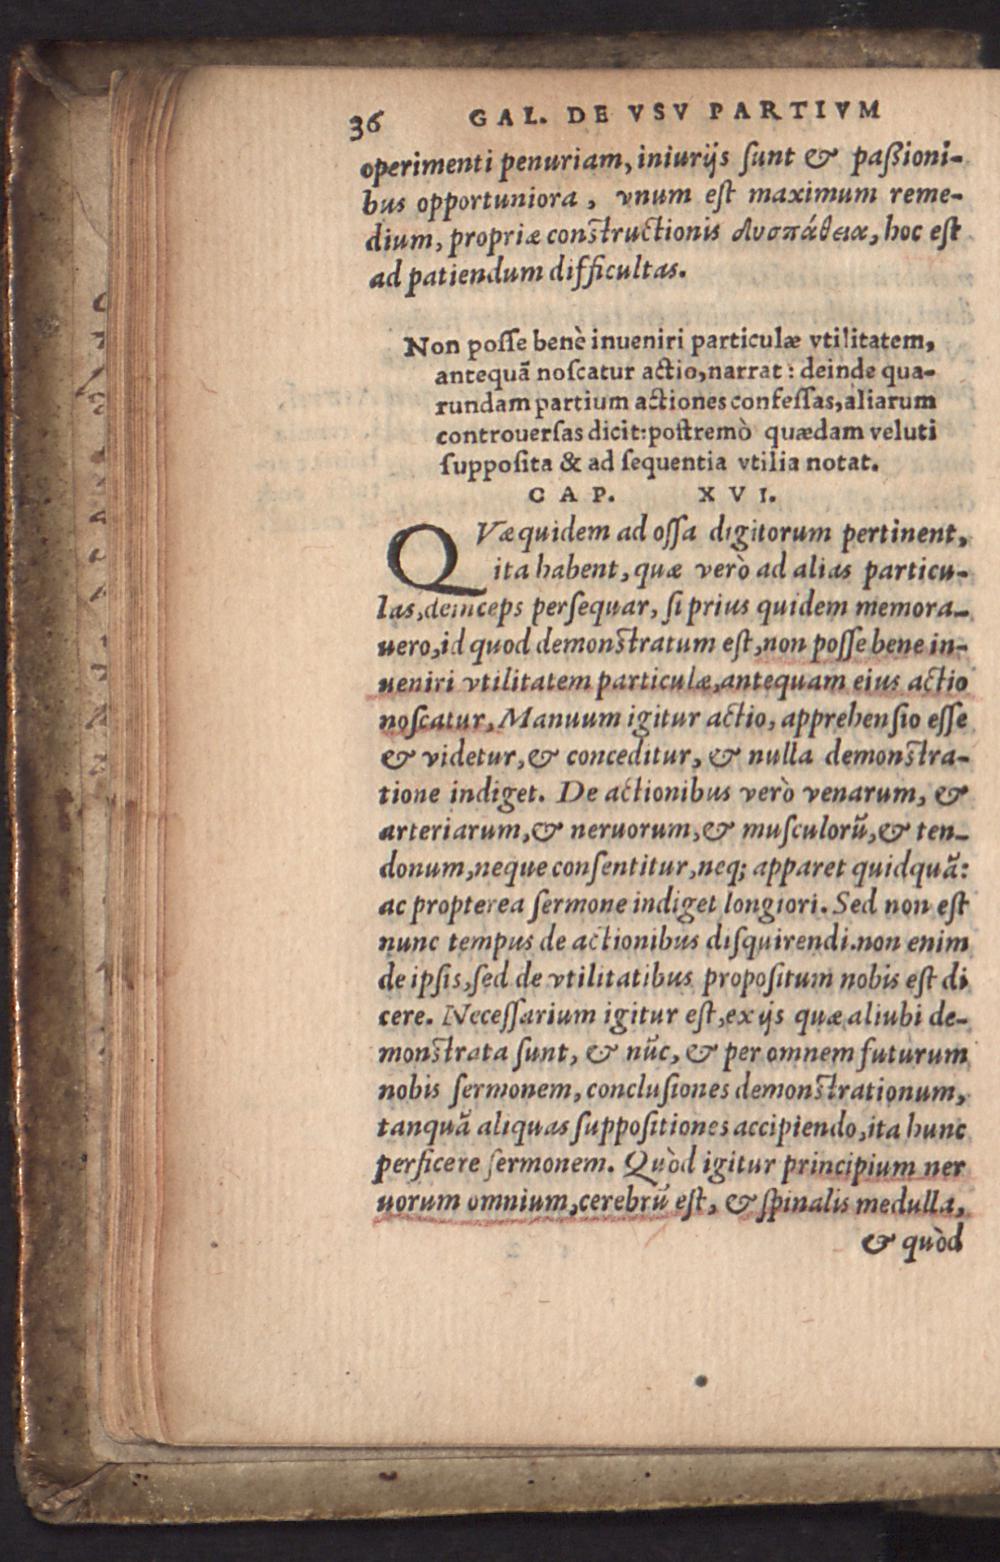 36 GAL. DE VSV PARTIVM
operimenti penuriam, iniurijs ſunt & paßioni-
bus opportuniora, vnum eſt maximum reme-
dium, propriæ conſtructionis δυσπάθεια, hoc eſt
ad patiendum difficultas.
Non poſſe benè inueniri particulæ vtilitatem,
antequã noſcatur actio, narrat: deinde qua-
rundam partium actiones confeſſas, aliarum
controuerſas dicit: poſtremò quædam veluti
ſuppoſita & ad ſequentia vtilia notat.
CAP. XVI.
QVæ quidem ad oſſa digitorum pertinent,
ita habent, quæ verò ad alias particu-
las, deinceps perſequar, ſi prius quidem memora-
uero, id quod demonſtratum eſt, non poſſe bene in-
ueniri vtilitatem particulæ, antequam eius actio
noſcatur. Manuum igitur actio, apprehenſio eſſe
& videtur, & conceditur, & nulla demonſtra-
tione indiget. De actionibus verò venarum, &
arteriarum, & neruorum, & muſculorũ, & ten-
donum, neque conſentitur, neq; apparet quidquã:
ac propterea ſermone indiget longiori. Sed non eſt
nunc tempus de actionibus diſquirendi. non enim
de ipſis, ſed de vtilitatibus propoſitum nobis eſt di
cere. Neceſſarium igitur eſt, ex ijs quæ aliubi de-
monſtrata ſunt, & nũc, & per omnem futurum
nobis ſermonem, concluſiones demonſtrationum,
tanquã aliquas ſuppoſitiones accipiendo, ita hunc
perficere ſermonem. Quòd igitur principium ner
uorum omnium, cerebrũ eſt, & ſpinalis medulla,
& quòd